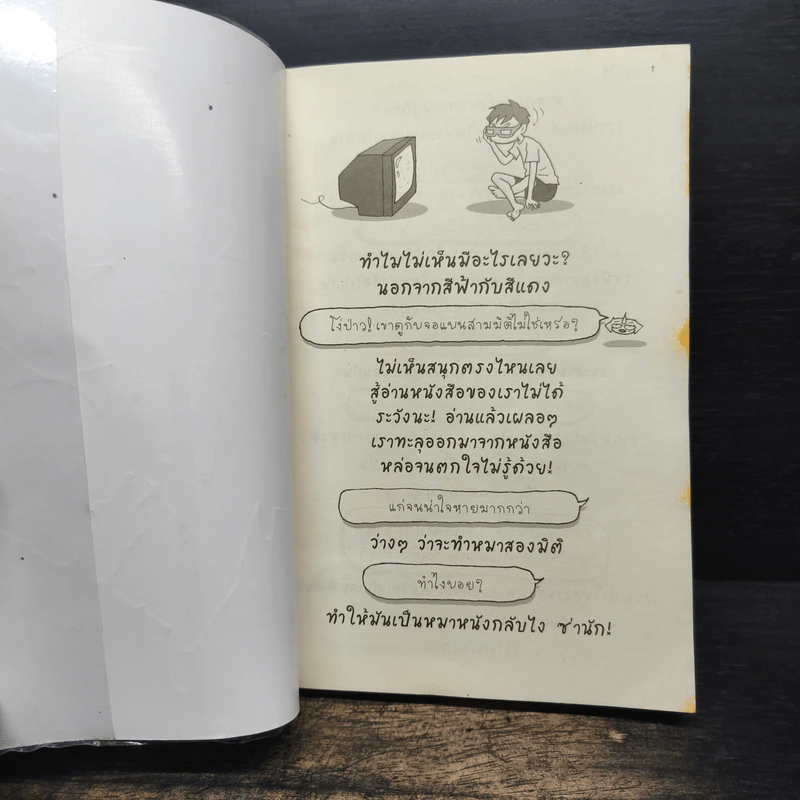 1
ทำไมไม่เห็นมีอะไรเลยวะ?
นอกจากสีฟ้ากับสีแดง
โง่ป่าว! เขาดูกับจอแบนสามมิติไม่ใช่เหรอ?
ไม่เห็นสนุกตรงไหนเลย
สู้อ่านหนังสือของเราไม่ได้
ระวังนะ! อ่านแล้วเผลอๆ
เราทะลุออกมาจากหนังสือ
หล่อจนตกใจไม่รู้ด้วย!
แก่จนน่าใจหายมากกว่า
ว่างๆ ว่าจะทำหมาสองมิติ
ทำไงบอย?
ทำให้มันเป็นหมาหนังกลับไง ซานัก!